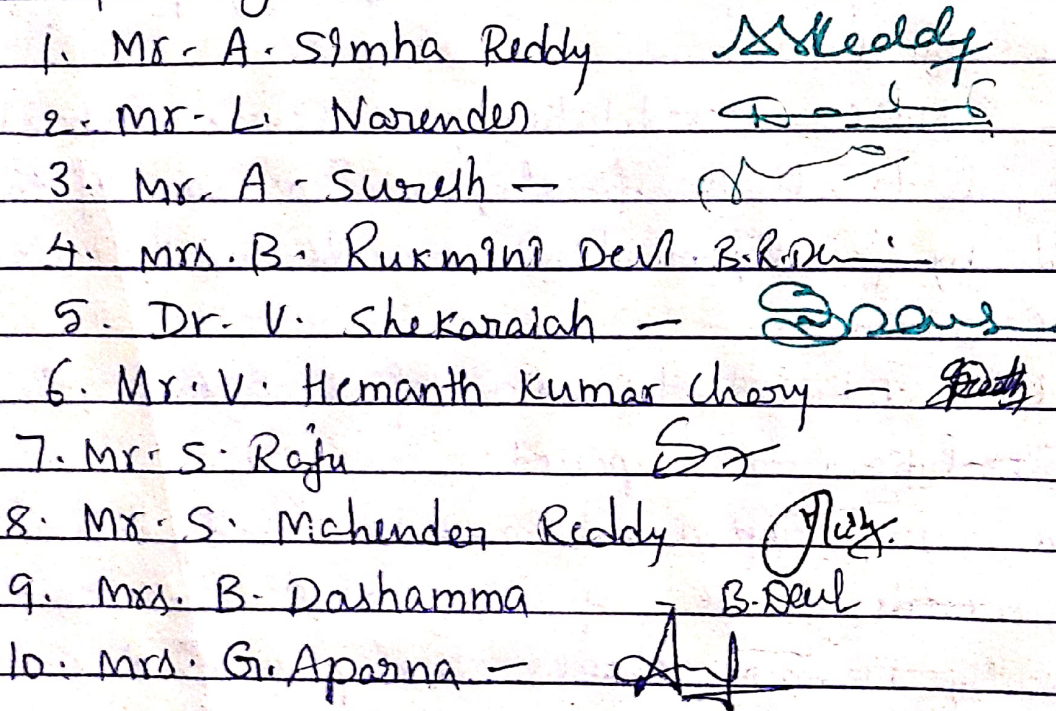 1. Mr. A. Simha Reddy
2. Mr. L. Narender
3. Mr. A. Suresh —
4. Mrs. B. Rukmini Devi B.R.Devi
5. Dr. V. Shekaraiah —
6. Mr. V. Hemanth Kumar Chary —
7. Mr. S. Raju
8. Mr. S. Mahender Reddy
9. Mrs. B. Dashamma B.Devi
10. Mrs. G. Aparna —